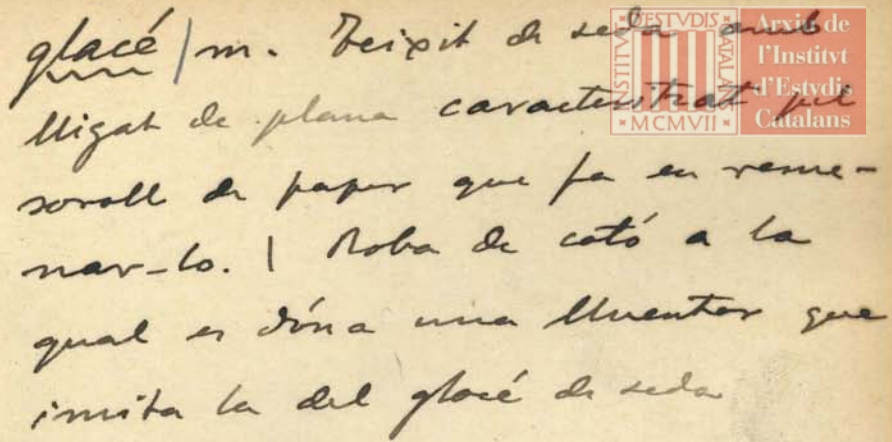 glacé | m. Teixit de seda amb
lligat de plana caracteritzat pel
soroll de paper que fa en reme-
nar-lo. | Roba de cotó a la
qual es dóna una lluentor que
imita la del glacé de seda
INSTITVT D'ESTVDIS CATALANS
MCMVII
Arxiu de
l'Institvt
d'Estvdis
Catalans